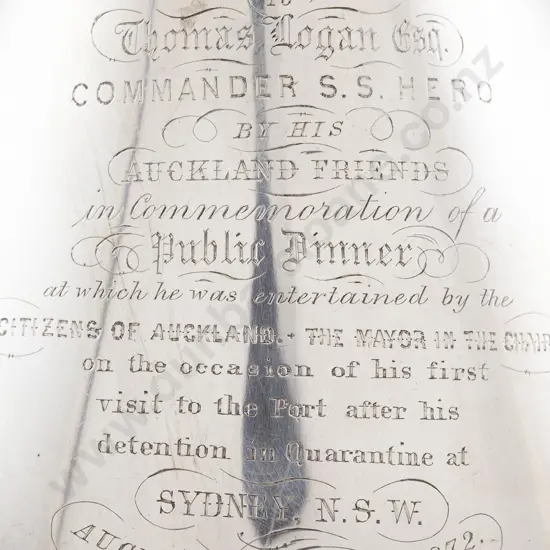 TO
Thomas Logan Esq.
COMMANDER S.S. HERO
BY HIS
AUCKLAND FRIENDS
in Commemoration of a
Public Dinner
at which he was entertained by the
CITIZENS OF AUCKLAND. - THE MAYOR IN THE CHAIR
on the occasion of his first
visit to the Port after his
detention in Quarantine at
SYDNEY, N.S.W.